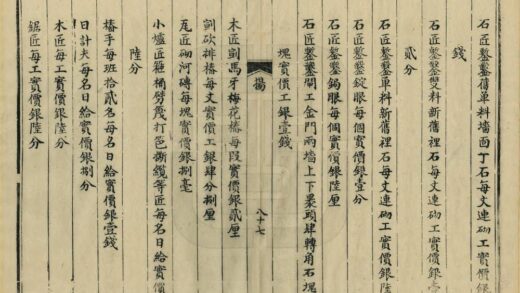 石匠鏨鑿舊單料墻面丁石每丈連砌工實價銀
錢
石匠鏨鑿雙料新舊裡石每丈連砌工實價銀
貳分
石匠鏨鑿單料新舊裡石每丈連砌工實價銀陸
石匠鏨鑿錠眼每個實價銀壹分
石匠鏨鑿鋦眼每個實價銀陸厘
石匠鏨鑿閘工金門兩墻上下裹頭肆轉角石塊
塊實價工銀壹錢
揚
八十七
木匠剅馬牙梅花樁每段實價銀貳厘
劄砍排樁每丈實價工銀肆分捌厘
瓦匠砌河磚每塊實價銀捌毫
小爐匠箍桶劈篾打笆撕纜等匠每名日給實價
陸分
樁手每班拾貳名每名日給實價銀壹錢
日計夫每名日給實價銀捌分
木匠每工實價銀陸分
鋸匠每工實價銀陸分